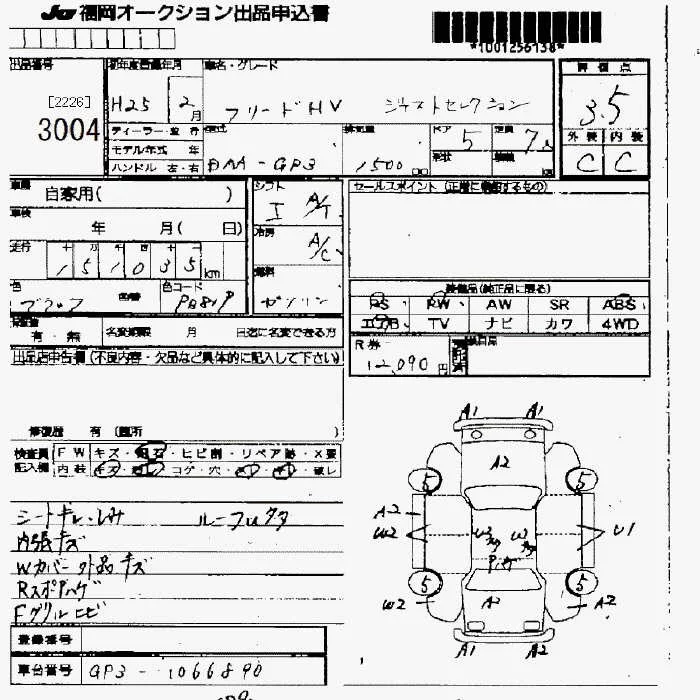 JU 福岡オークション出品申込書
*1001256138*
出品番号
[2226]
3004
初年度登録年月
H25 2月
車名・グレード
フリードHV ジャストセレクション
評価点
3.5
外装 内装
C C
ディーラー・並行
モデル年式 年
ハンドル 左・右
型式
DAA-GP3
排気量
1500
ドア
5
形状
定員
7人
車歴
自家用( )
車検
年 月( 日)
走行 十 万 千 百 十
151035km
色
ブラック
色コード
PB81P
シフト
I A/T
冷房
A/C
燃料
ガソリン
セールスポイント (正確に記載するもの)
装備品(純正品に限る)
PS PW AW SR ABS
エアB TV ナビ カワ 4WD
有・無 名変期限 月 日迄に名変できる方
R券
12,090円
出品店申告欄 (不良内容・欠品など具体的に記入して下さい)
修復歴 有 (箇所 )
検査員記入欄
FW キズ・飛石・ヒビ割・リペア跡・X要
内装 キズ・汚レ・コゲ・穴・切レ・破レ
シートキレ・シミ ルーフUタタ
内張キズ
Wカバー外品キズ
Rスポアハゲ
Fグリルヒビ
登録番号
車台番号
GP3-1066890
A1 A1
A2
5 5
A2
W2 U1
U3 U3
5 5
W2 A2 A2
A1 A2